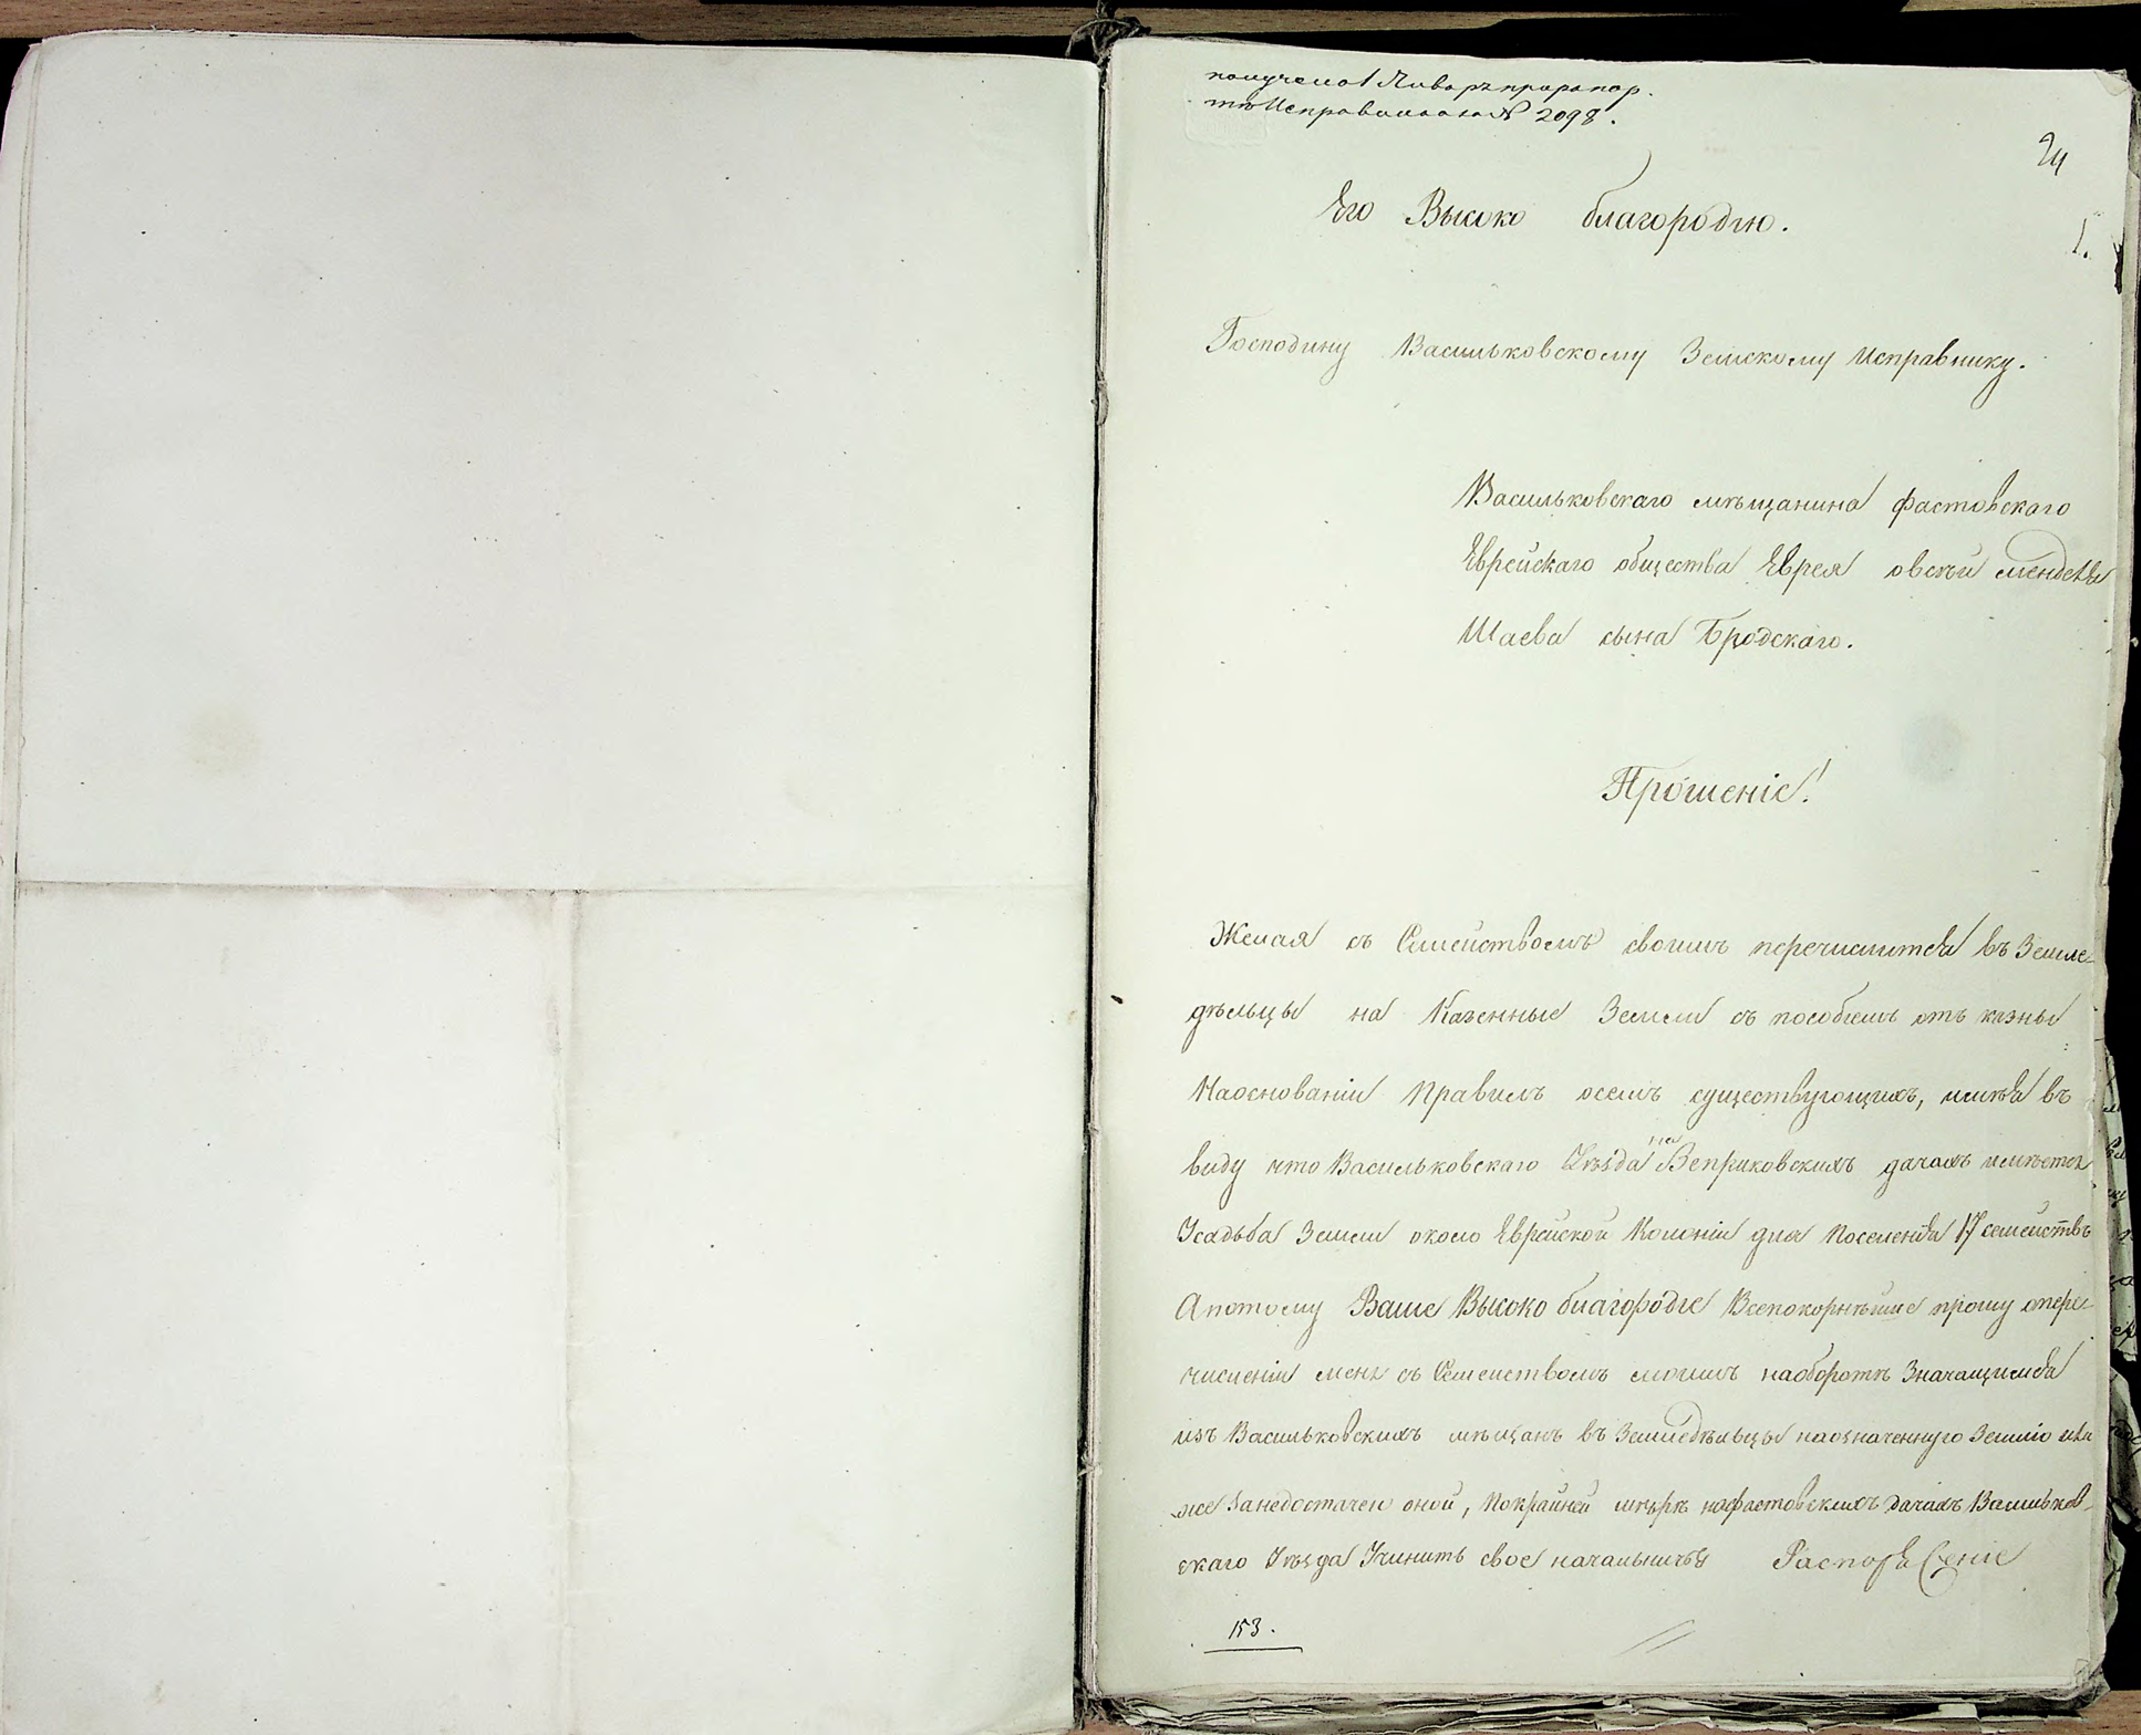 получено 1 Январ. при рапор.
тѣ Исправника № 2098.
24
1.
Его Высоко благородію.
Господину Васильковскому Земскому Исправнику.
Васильковскаго мѣщанина фастовскаго
Еврейскаго общества Еврея овсѣй мендела
Шаева сына Бродскаго.
Прошеніе!
Желая съ Семействомъ своимъ перечислится въ Земле-
дѣльцы на Казенные Земли съ пособіемъ отъ казны
Наоснованіи Правилъ осемъ существующихъ, имѣя въ
виду что Васильковскаго Уѣзда на Веприковскихъ дачахъ имѣетса
Усадьба Земли около Еврейской Колоніи для Поселенія 17 семействъ
Апотому Ваше Высоко благородіе Всепокорнѣйше прошу опере-
численіи меня съ Семействомъ моимъ наоборотѣ Значащимся
изъ Васильковскихъ мѣщанъ въ Земледѣльцы наозначенную Землю или
же Занедостачею оной, Покрайней мѣрѣ нафастовскихъ дачахъ Васильков-
скаго Уѣзда Учинить свое начальничье Распоряженіе
153.